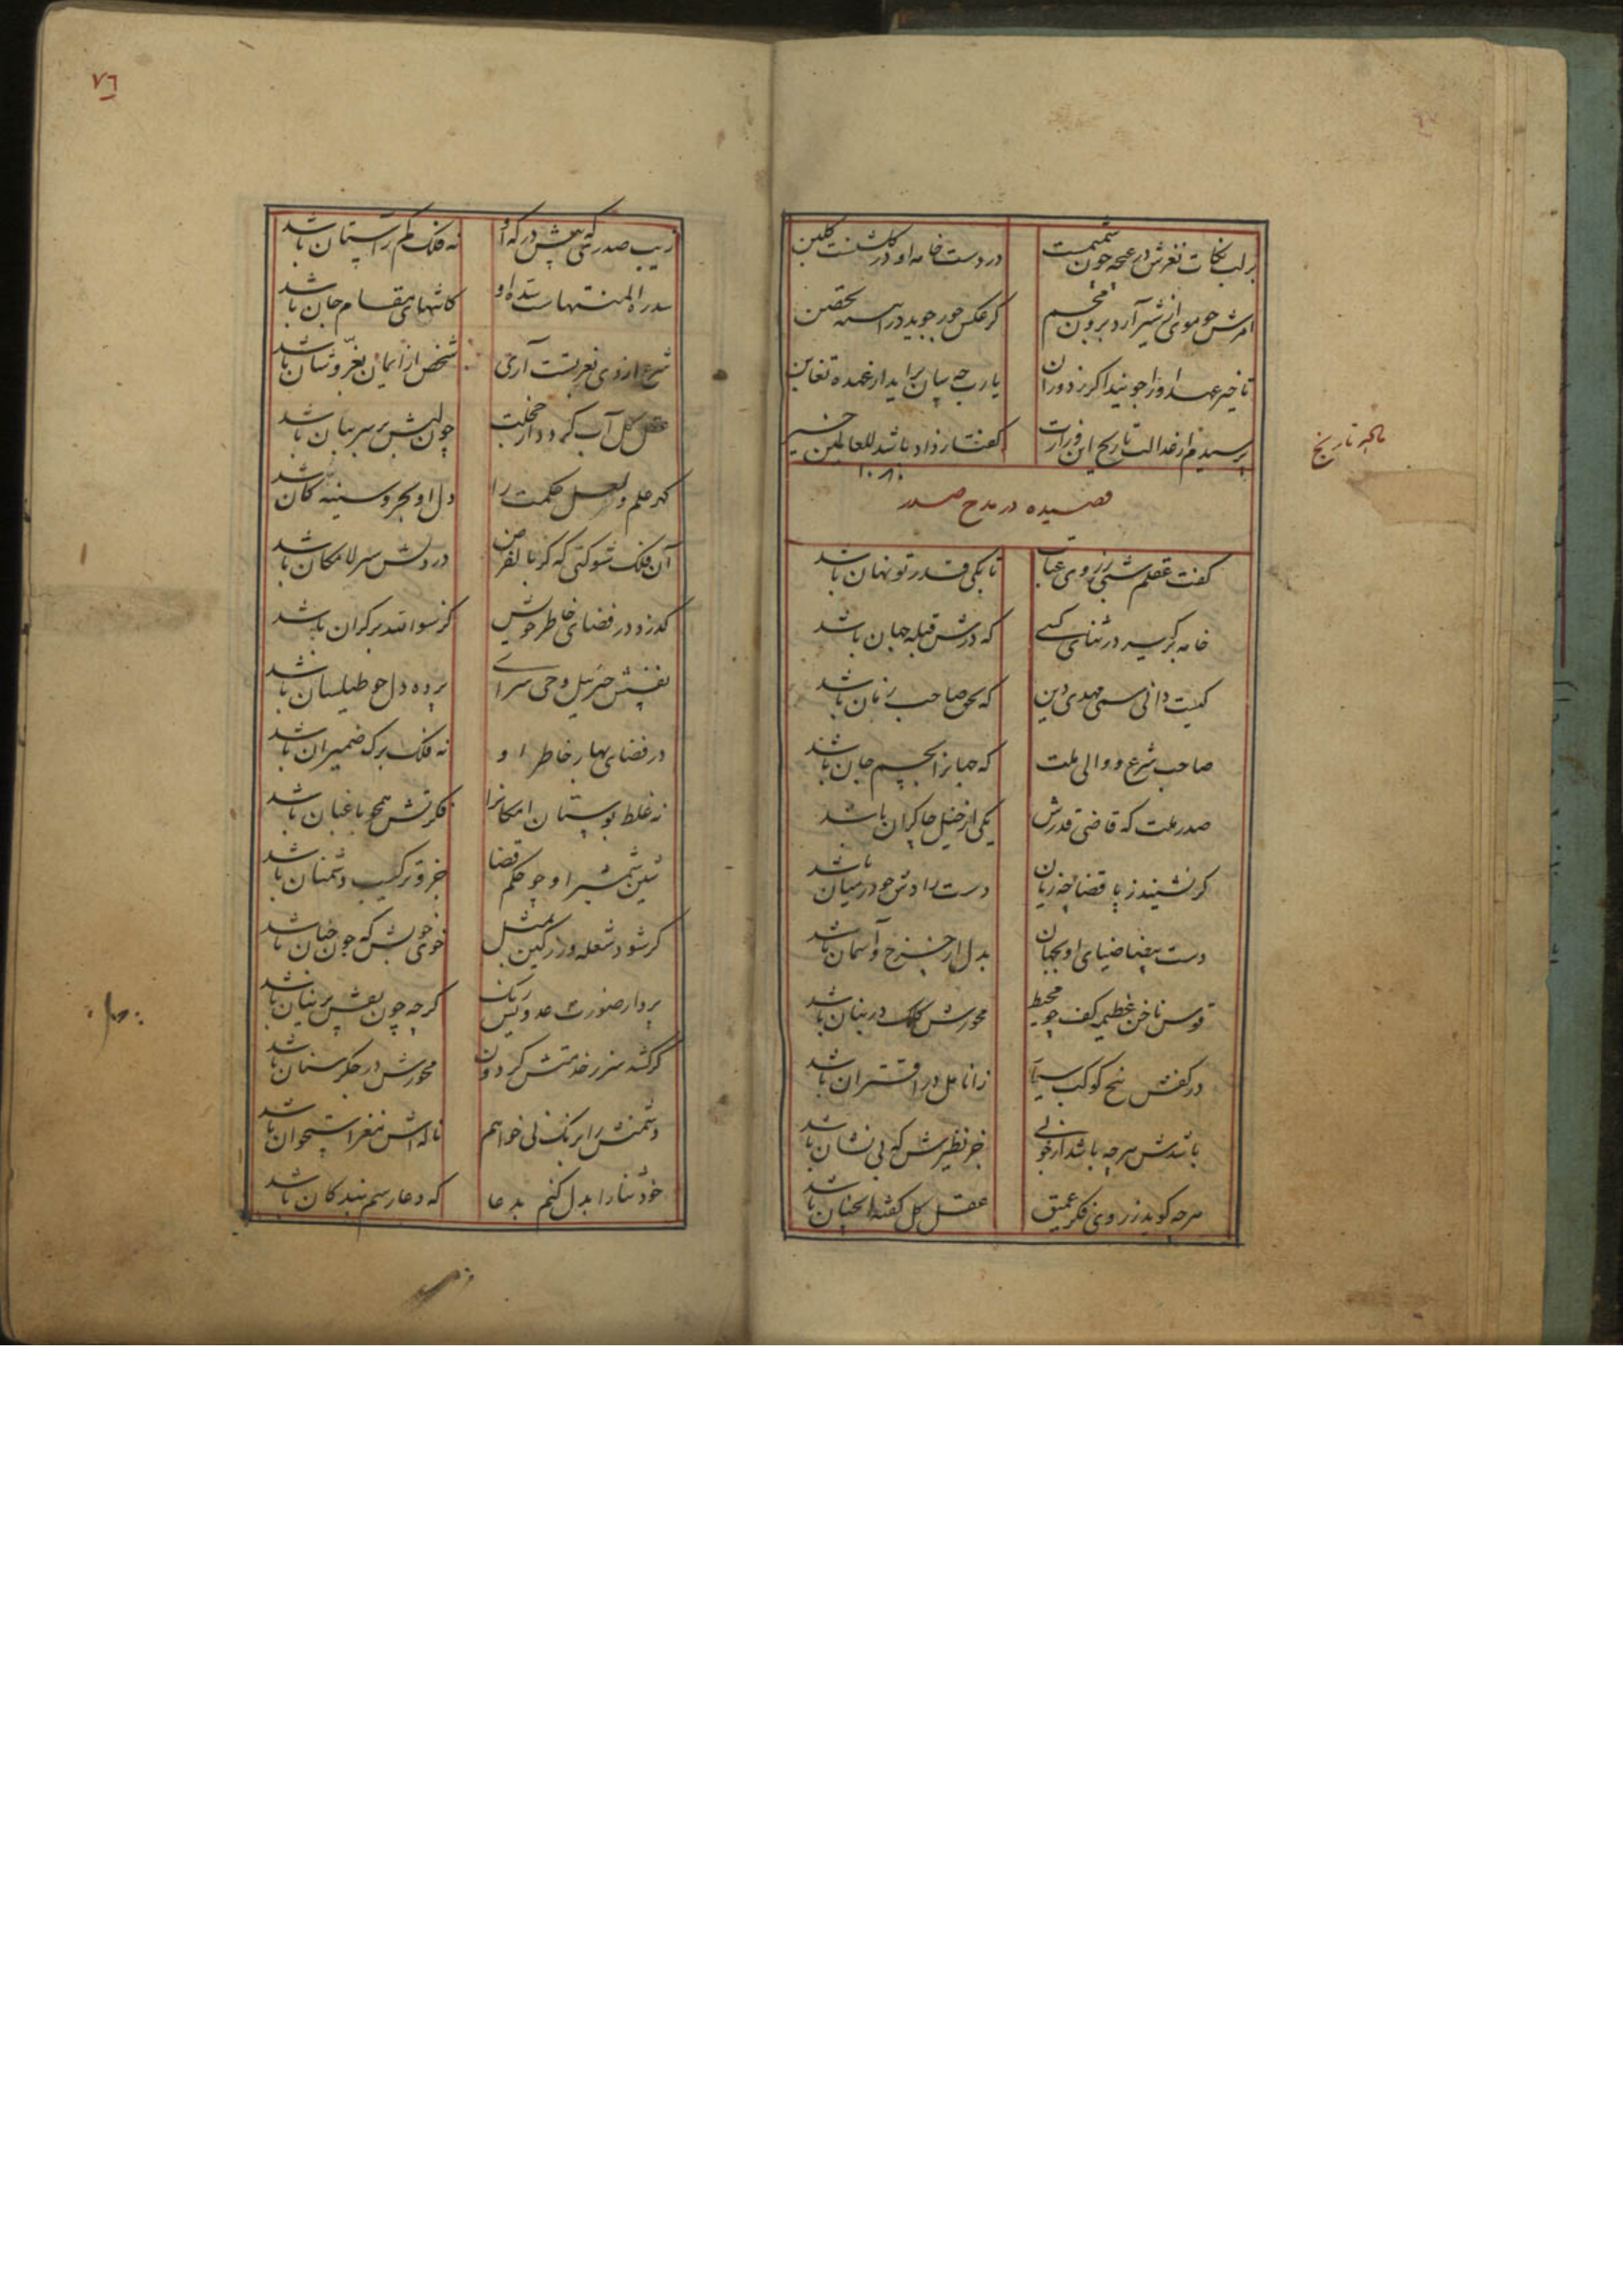 بر لب نکات نغزش در غنچه چون شمیمست در دست خامه او در کلشنست کلبن
امرش چو موی از شیر آرد برون مجسم کر عکس حور جوید در
تا خیر عهد او را جویند اکر ز دوران یا رب چه سان براید از عهده
پرسیدم از عدالت تاریخ این وزارت کفتا ز داد باشد للعالمین
۱۰۸۰
تاریخ
قصیده در مدح صدر
کفت عقلم شبی ز روی عتاب تا بکی قدر تو نهان باشد
خامه برکیر در ثنای کسی که درش قبله جهان باشد
کیست دانی سمی مهدی دین که بحق صاحب زمان باشد
صاحب شرع و والی ملت که جهانرا بجسم جان باشد
صدر ملت که قاضی قدرش یکی از خیل چاکران باشد
کر نشیند ز پا قضا چه زیان دست رادش چو در میان باشد
دست بیضا ضیای او بجهان بدل از چرخ و آسمان باشد
قوس ناخن عظیمه کف چو محیط محورش کلک در بنان باشد
در کفش پنج کوکب سیار ز انامل در اقتران باشد
باشدش هرچه باشد از خوبی جز نظیرش که بی نشان باشد
هرچه کوید ز روی فکر عمیق عقل کل کفته آنچنان باشد
٧٦
زیب صدر که پیش درکه او نه فلک کم ز آستان باشد
سدره المنتهاست سده او کانتهای مقام جان باشد
شرع ازوی آری شخص از ایمان باشد
عقل کل آب کردد از خجلت چون لبش بر سر بیان باشد
کهر علم و لعل حکمت را دل او بحر و سینه کان باشد
آن فلک شوکتی که کر بالفرض در دلش سر لامکان باشد
کذرد در فضای خاطر خویش کز سوا بر کران باشد
نفسش جبرئیل وحی سرای پرده دل چو طیلسان باشد
در فضای بهار خاطر او نه فلک برک ضمیران باشد
نه غلط بوستان امکانرا فکرتش همچو باغبان باشد
شین شمشیر او چو حکم قضا جزو ترکیب دشمنان باشد
کر شود شعله ور کین بمثل خوی خویش که چون جنان باشد
بردار صورت عدویش رنک کرچه چون نقش پرنیان باشد
کر کشد سر ز خدمتش کردون محورش در جکر سنان باشد
دشمنش را برنک نی خواهم ناله اش مغز استخوان باشد
خود ثنا را بدل کنم بدعا که دعا رسم بندکان باشد